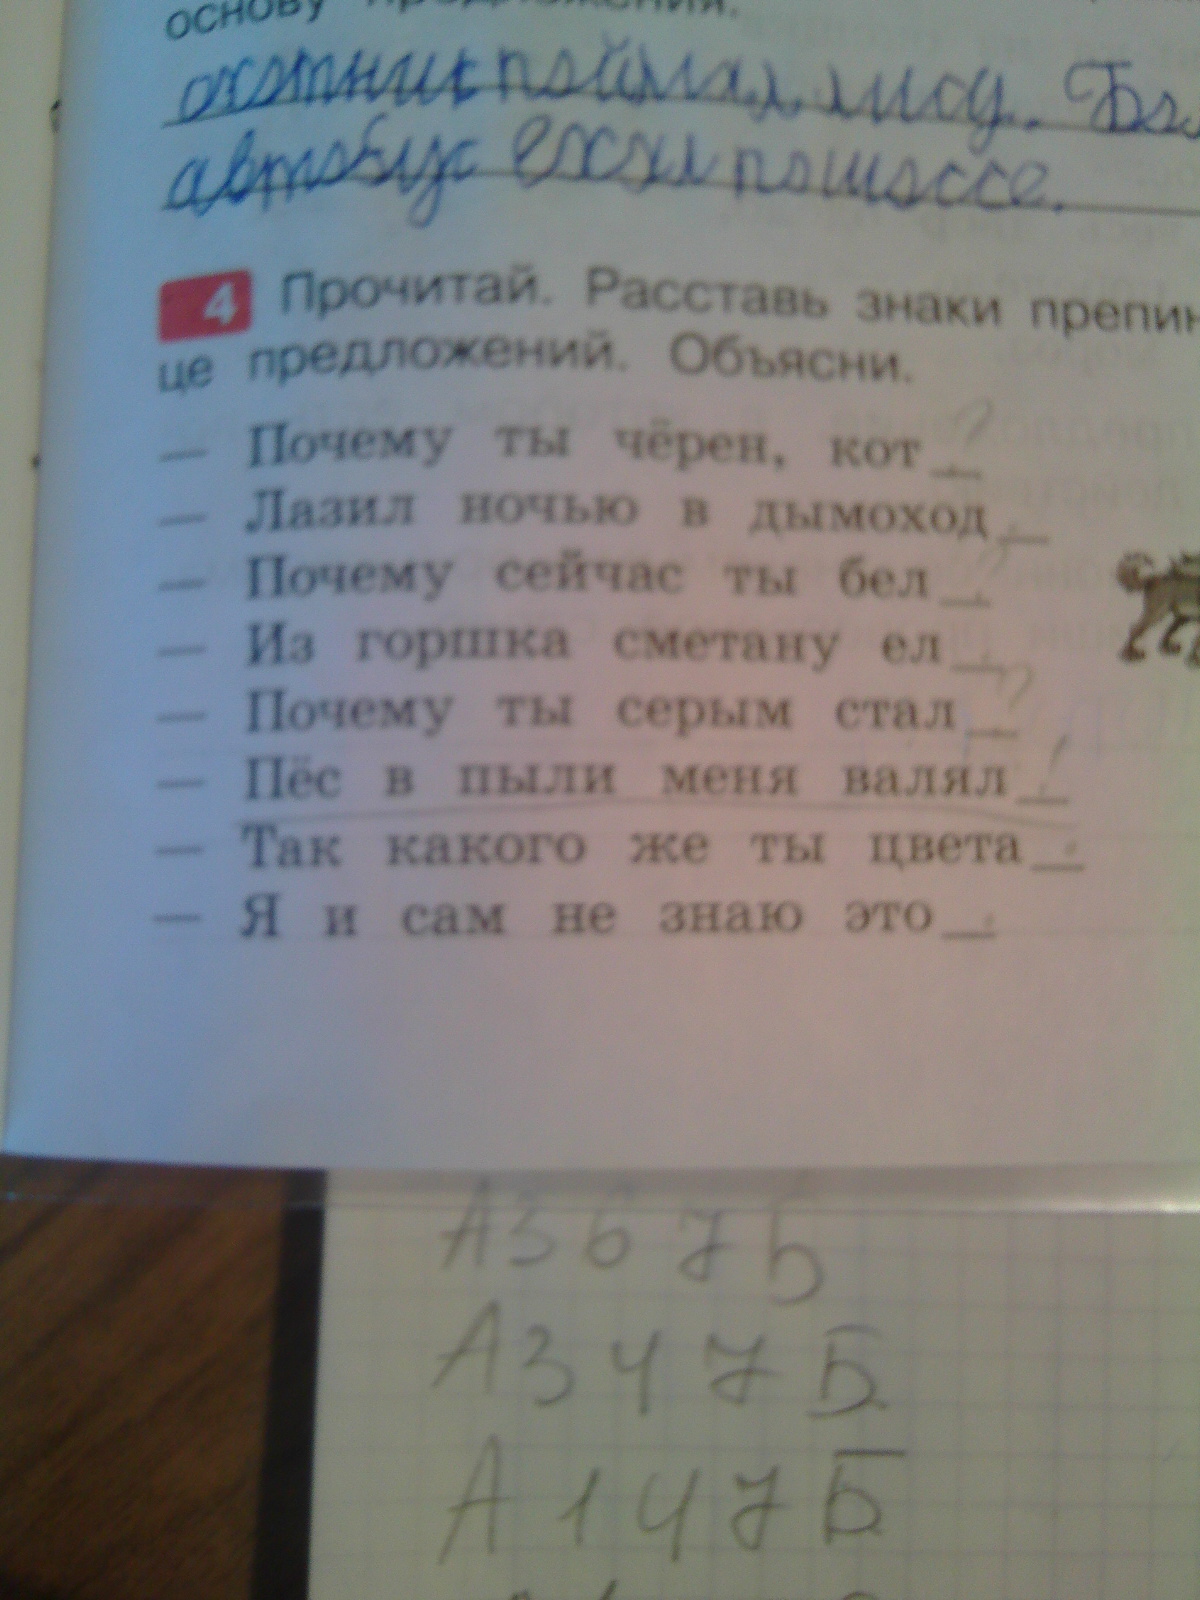 основу предложения.
охотник поймал лису.
автобус ехал по шоссе.
4 Прочитай. Расставь знаки препин
це предложений. Объясни.
— Почему ты чёрен, кот ?
— Лазил ночью в дымоход .
— Почему сейчас ты бел ?
— Из горшка сметану ел .
— Почему ты серым стал ?
— Пёс в пыли меня валял !
— Так какого же ты цвета .
— Я и сам не знаю это .
А 3 6 7 Б
А 3 4 7 Б
А 1 4 7 Б